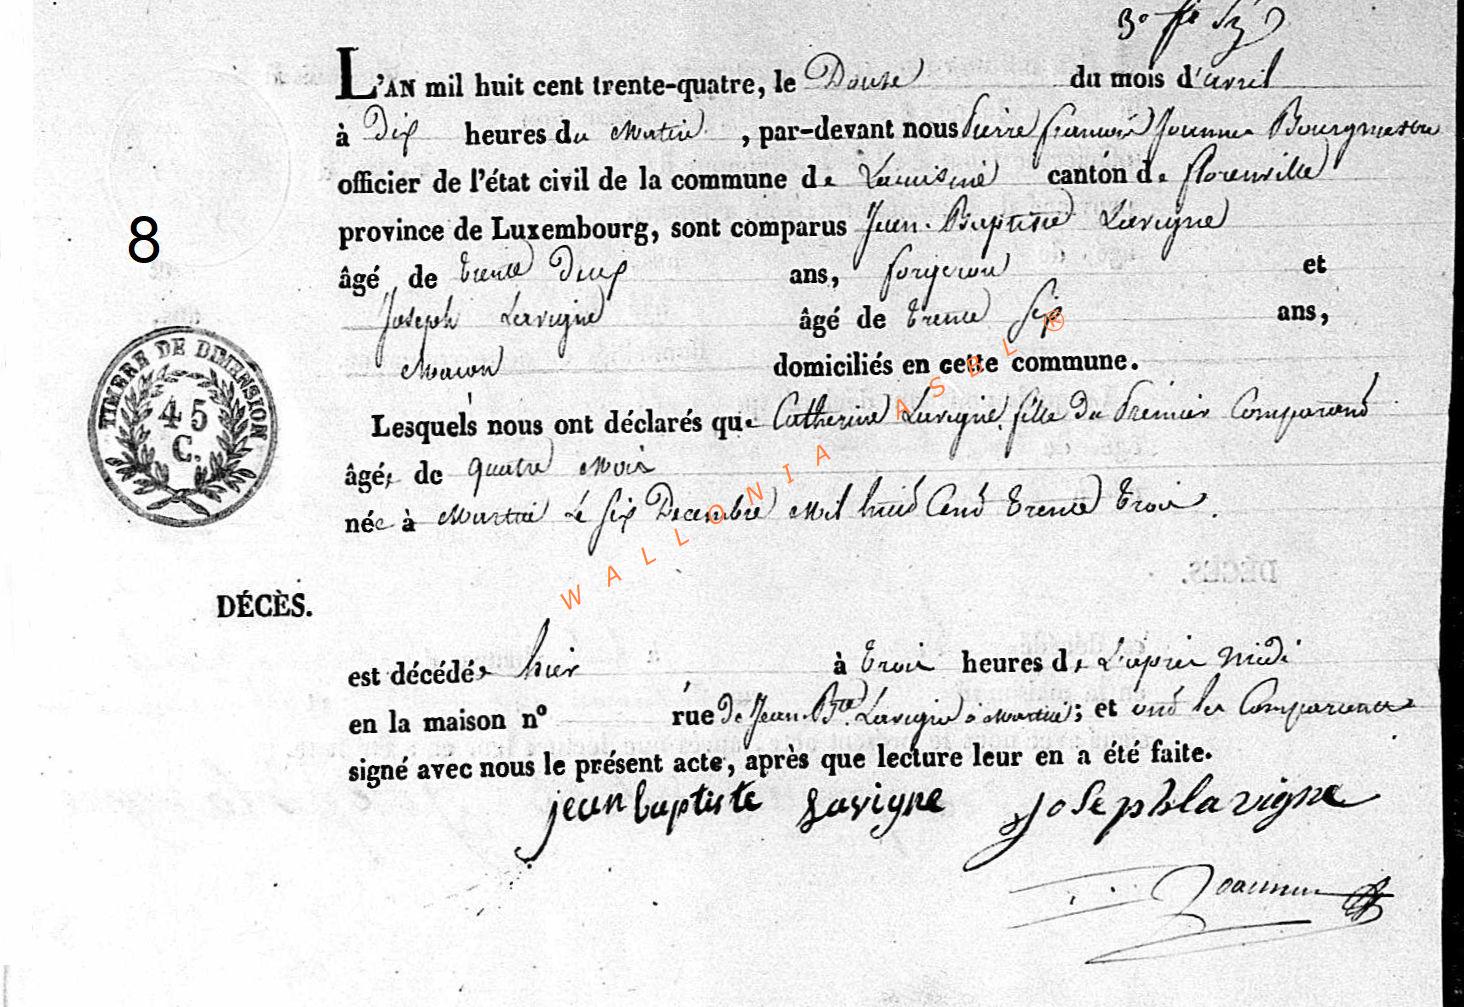 3e ffe
L'AN mil huit cent trente-quatre, le Douse du mois d'avril
à Dix heures du Matin, par-devant nous Pierre françois Joannes Bourgmestre
officier de l'état civil de la commune de Lacuisine cantón de florenville
province de Luxembourg, sont comparus Jean-Baptiste Lavigne
8
âgé de trente Deux ans, forgeron et
Joseph Lavigne âgé de trente six ans,
Macon domiciliés en cette commune.
TIMBRE DE DIMENSION
45
C.
Lesquels nous ont déclarés que Catherine Lavigne, fille du Premier Comparant
âgée de quatre Mois
née à Martué Le six Decembre Mil huit Cent trente trois.
WALLONIA ASBL ®
DÉCÈS.
est décédée hier à trois heures de L'apres Midi
en la maison nº rue de Jean Bte Lavigne à Martué; et ont les Comparants
signé avec nous le présent acte, après que lecture leur en a été faite.
jean baptiste Lavigne Joseph lavigne
Joannes